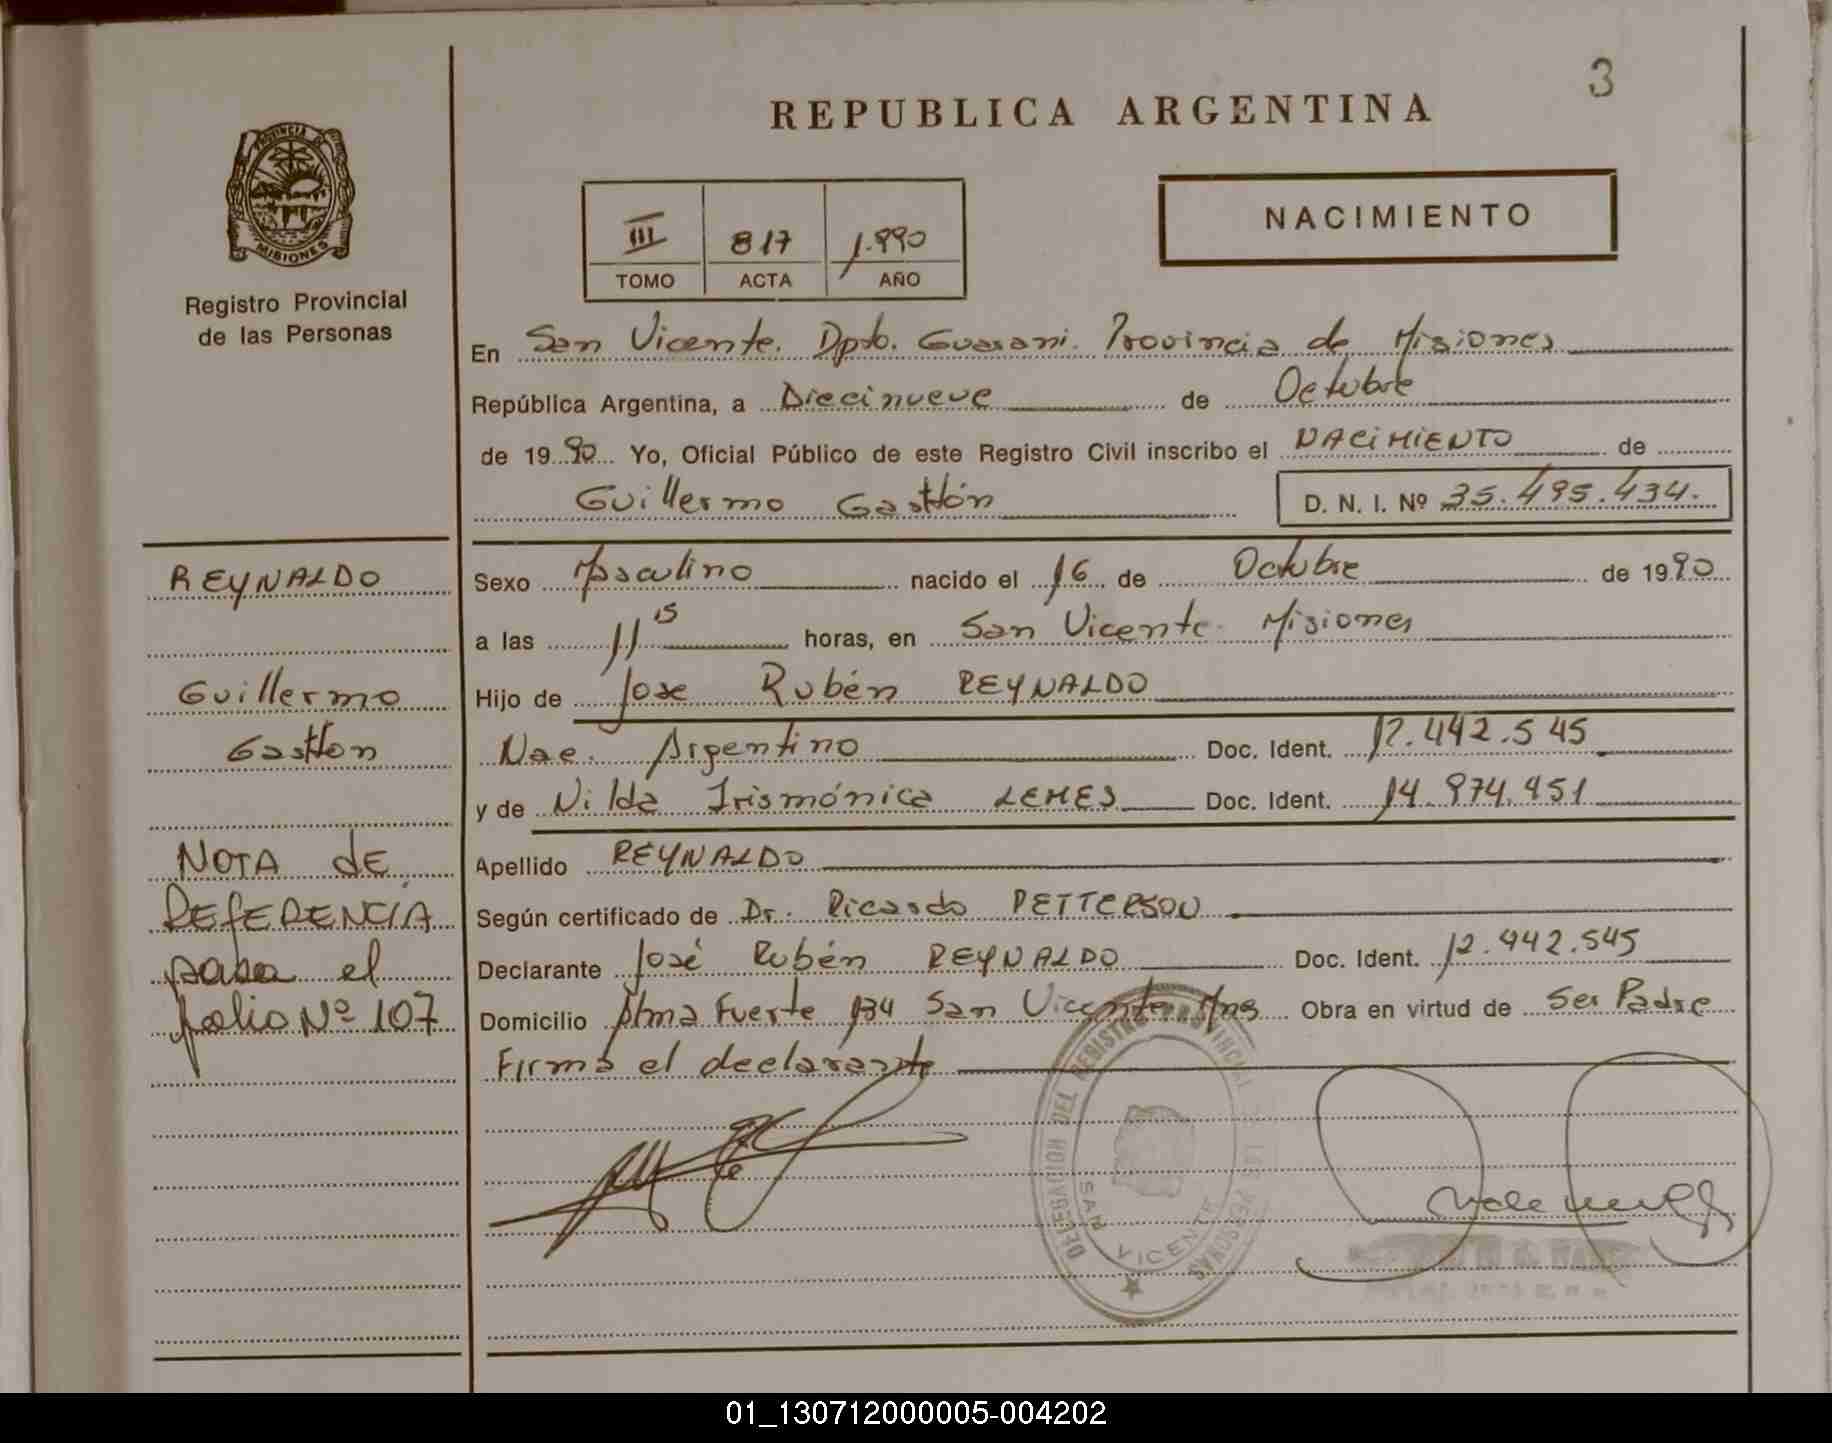 3
REPUBLICA ARGENTINA
PROVINCIA DE
MISIONES
Registro Provincial
de las Personas
III 817 1.990
TOMO ACTA AÑO
NACIMIENTO
En San Vicente. Dpto. Guarani. Provincia de Misiones
República Argentina, a Diecinueve de Octubre
de 1990 Yo, Oficial Público de este Registro Civil inscribo el NACIMIENTO de
Guillermo Gastton D. N. I. Nº 35.495.434.
REYNALDO
Guillermo
Gastton
NOTA dE
REfERENCIA
pasa el
folio Nº 107
Sexo Masculino nacido el 16 de Octubre de 1990
a las 11 15 horas, en San Vicente. Misiones
Hijo de Jose Rubén REYNALDO
Nac. Argentino Doc. Ident. 12.442.545
y de Nilda Irismónica LEMES Doc. Ident. 14.974.451
Apellido REYNALDO
Según certificado de Dr. Ricardo PETTERSON
Declarante José Rubén REYNALDO Doc. Ident. 12.442.545
Domicilio Alma Fuerte 134 San Vicente Mnes Obra en virtud de Ser Padre
Firma el declarante
DELEGACION DEL REGISTRO PROVINCIAL DE LAS PERSONAS
SAN VICENTE
01_130712000005-004202